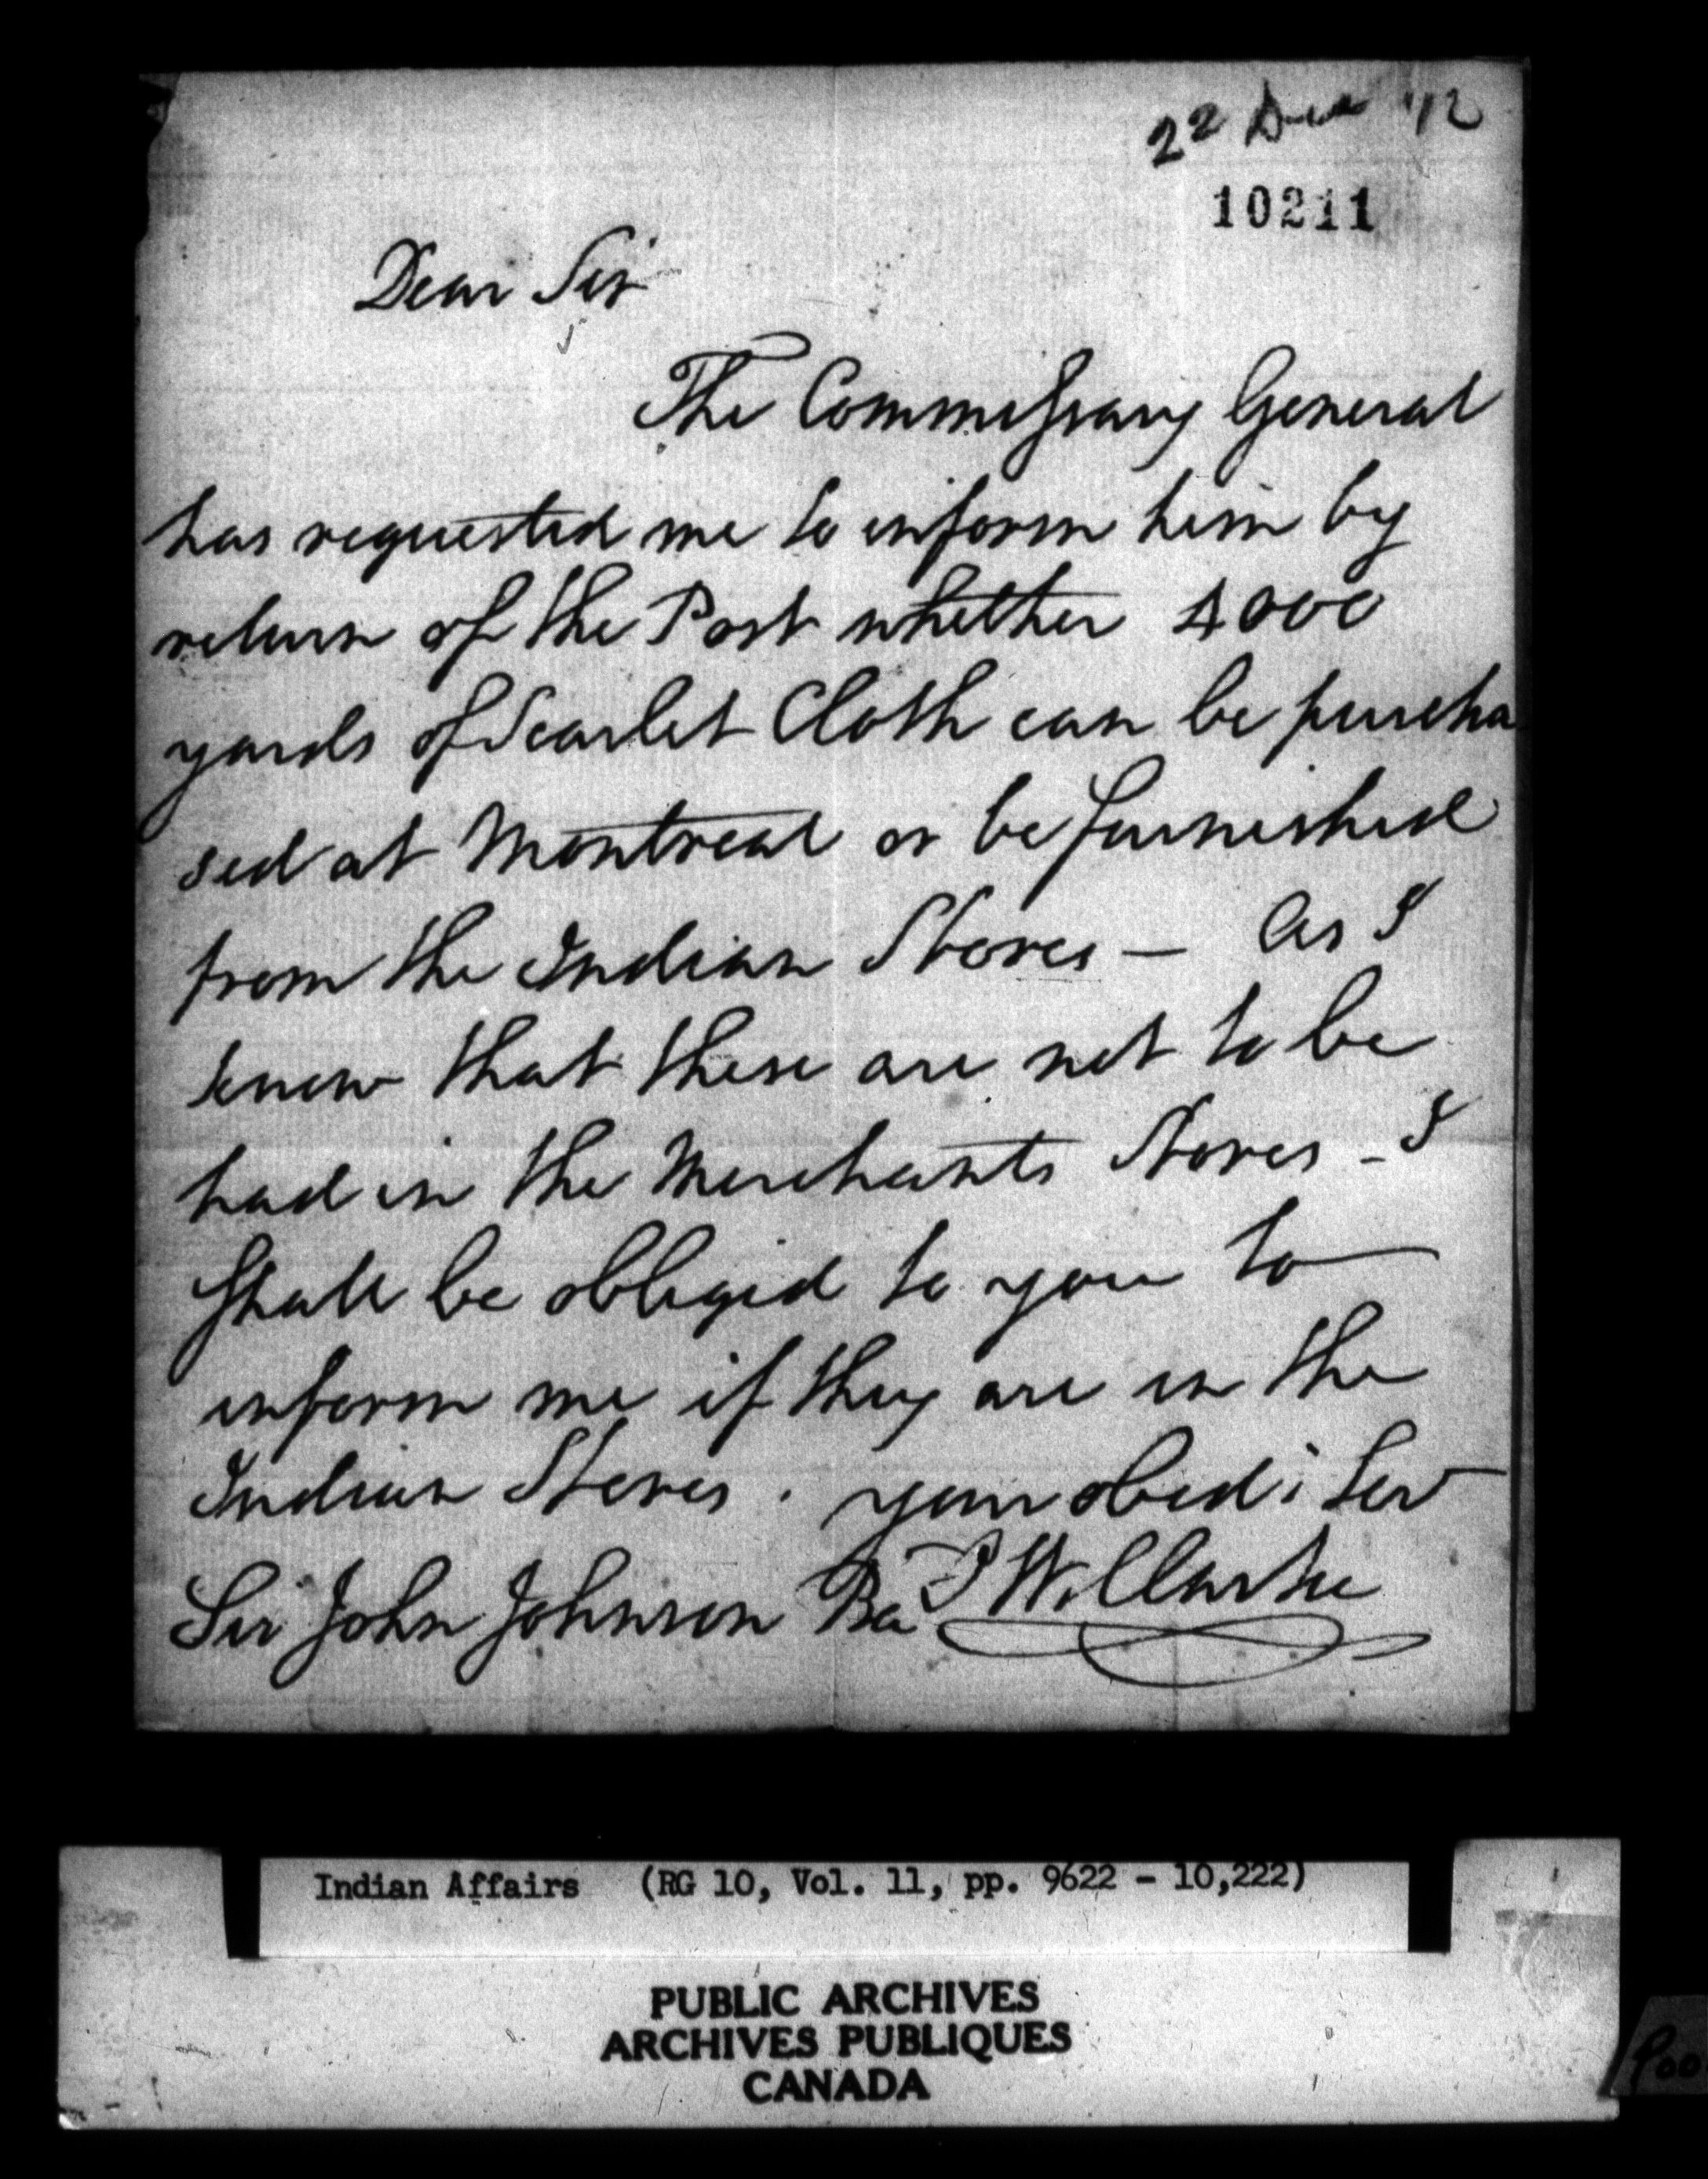 22 Dec '12
10211
Dear Sir
The Commissary General
has requested me to inform him by
return of the Post whether 4000
yards of Scarlet Cloth can be purcha
sed at Montreal or be furnished
from the Indian Stores — As I
know that these are not to be
had in the Merchants Stores - I
shall be obliged to you to
inform me if they are in the
Indian Stores . your obed: Ser
Sir John Johnson Ba I W. Clarke
Indian Affairs (RG 10, Vol. 11, pp. 9622 - 10,222)
PUBLIC ARCHIVES
ARCHIVES PUBLIQUES
CANADA